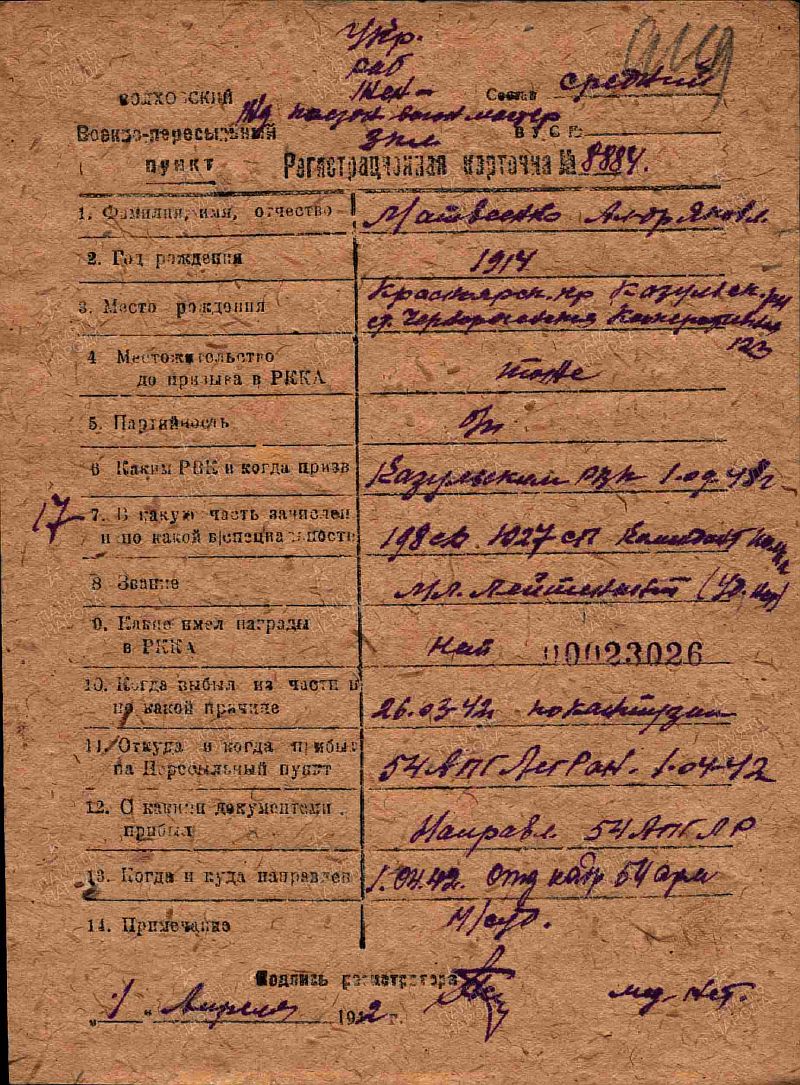 Укр.
раб
жен-
ВОЛХОВСКИЙ
Состав средний
Военно-пересыльный
в У С №
пункт Регистрационная карточка № 8884.
1. Фамилия, имя, отчество Матвеенко Яковл.
2. Год рождения 1914
3. Место рождения Красноярск. кр Казульск. рн
123
4 Местожительство
до призыва в РККА тоже
5. Партийность б/п
6 Каким РВК и когда призв Казульским РВК
17
7. В какую часть зачислен
и по какой в/специальности 198 сд 1027 сп Комендант
8 Звание Мл. Лейтенант
9. Какие имел награды
в РККА Нет 00023026
10. Когда выбыл из части и
по какой причине 26.03-42 по контузии
11. Откуда и когда прибыл
на Пересыльный пункт 54 АПГ ЛегРан. 1.04-42
12. С какими документами
прибыл Направл 54 АПГЛР
13. Когда и куда направлен 1.04.42. Отд кадр 54 арм
14. Примечание
Подпись регистратора
„ 1 “ Апреля 1942 г.